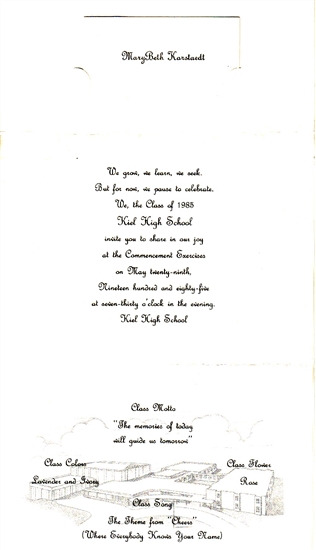 MaryBeth Karstaedt
We grow, we learn, we seek.
But for now, we pause to celebrate.
We, the Class of 1985
Kiel High School
invite you to share in our joy
at the Commencement Exercises
on May twenty-ninth,
Nineteen hundred and eighty-five
at seven-thirty o'clock in the evening.
Kiel High School
Class Motto
"The memories of today
will guide us tomorrow"
Class Colors
Lavender and Ivory
Class Flower
Rose
Class Song
The Theme from "Cheers"
(Where Everybody Knows Your Name)